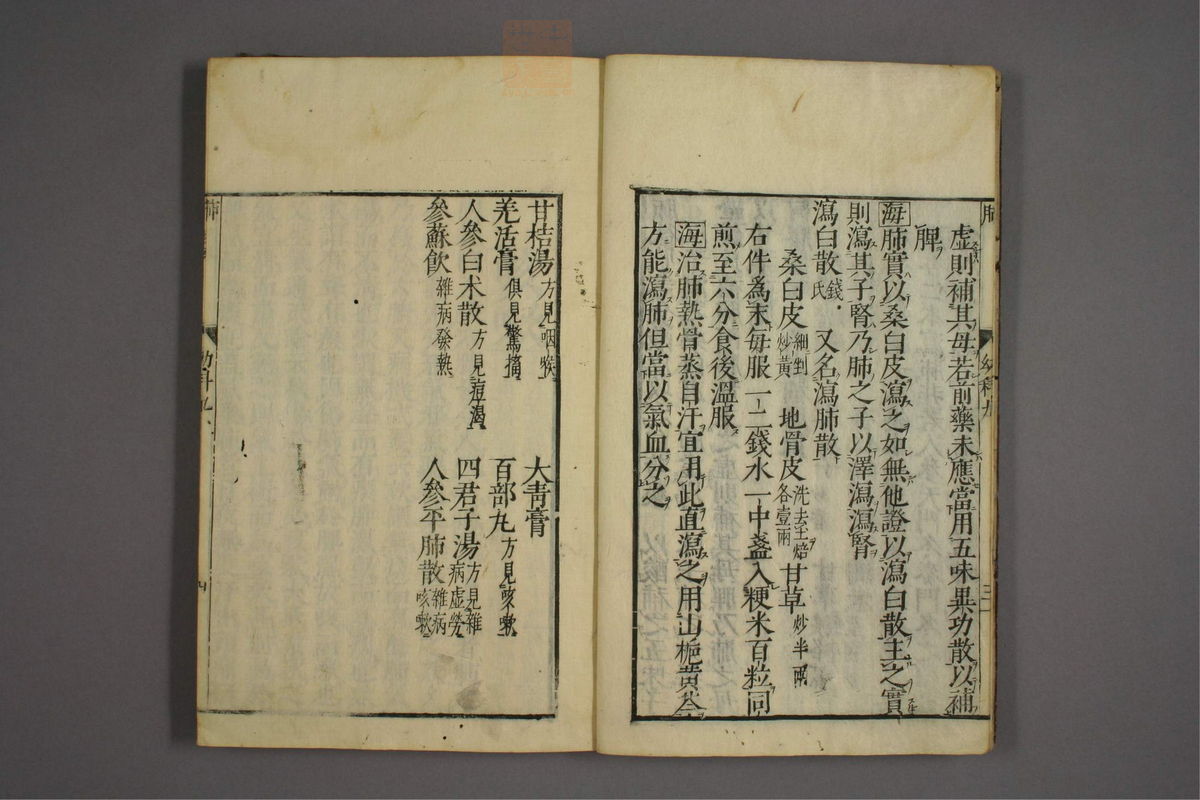 虛則補其母若前藥未應當用五味異功散以補
脾
海肺實以桑白皮瀉之如無他證以瀉白散主之實
則瀉其子腎乃肺之子以澤瀉瀉腎
瀉白散錢氏 又名瀉肺散
桑白皮細剉炒黃 地骨皮洗去土焙各壹兩 甘草炒半兩
右件爲末每服一二錢水一中盞入粳米百粒同
煎至六分食後溫服
海治肺熱骨蒸自汗宜用此直瀉之用山梔黃芩
方能瀉肺但當以氣血分之
甘桔湯方見咽喉 大靑膏
羌活膏俱見驚搐 百部丸方見咳嗽
人參白朮散方見痘渴 四君子湯方見雜病虛勞
參蘇飮雜病發熱 人參平肺散雜病咳嗽
肺
四